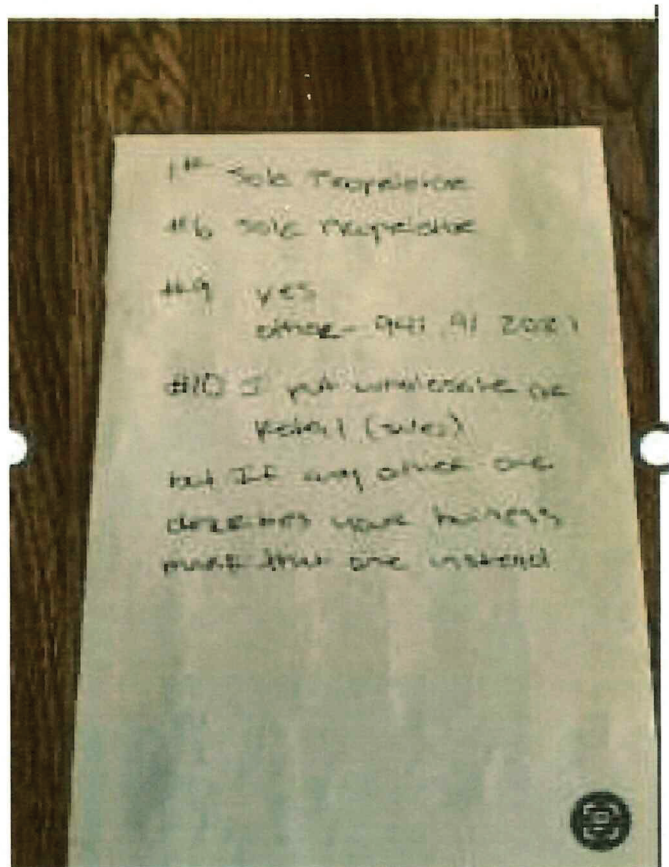 1st Sole Proprietor
#6 Sole Proprietor
#9 yes
other - 941
#10 I put wholesale or
Retail (sales)
but If any other one
describes your
mark that one instead